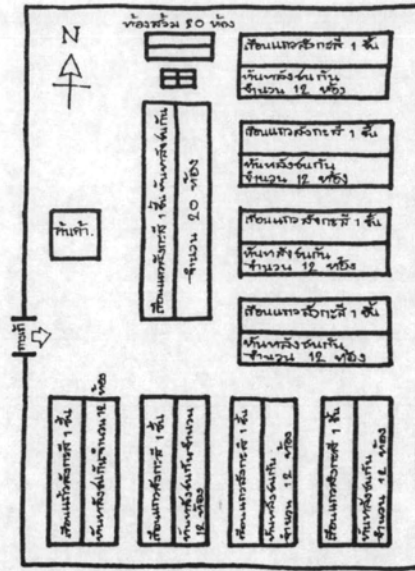 ห้องส้วม 20 ห้อง
N
เรือนแถวสังกะสี 1 ชั้น
หันหลังชนกัน
จำนวน 12 ห้อง
เรือนแถวสังกะสี 1 ชั้น
หันหลังชนกัน
จำนวน 12 ห้อง
เรือนแถวสังกะสี 1 ชั้น
หันหลังชนกัน
จำนวน 12 ห้อง
เรือนแถวสังกะสี 1 ชั้น
หันหลังชนกัน
จำนวน 12 ห้อง
เรือนแถวสังกะสี 1 ชั้นหันหลังชนกัน
จำนวน 20 ห้อง
เรือนแถวสังกะสี 1 ชั้น
หันหลังชนกันจำนวน 12 ห้อง
เรือนแถวสังกะสี 1 ชั้น
หันหลังชนกันจำนวน
12 ห้อง
เรือนแถวสังกะสี 1 ชั้น
หันหลังชนกัน
จำนวน 12 ห้อง
เรือนแถวสังกะสี 1 ชั้น
หันหลังชนกัน
จำนวน 12 ห้อง